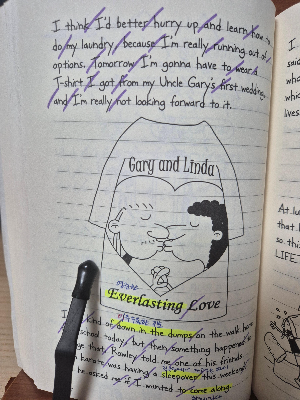 I think I'd better hurry up and learn how to
do my laundry, because I'm really running out of
options. Tomorrow I'm gonna have to wear a
T-shirt I got from my Uncle Gary's first wedding,
and I'm really not looking forward to it.
Gary and Linda
Everlasting Love
kind of down in the dumps on the walk home
school today, but then something happened to
that. Rowley told me one of his friends
karate was having a sleepover this weekend,
he asked me if I wanted to come along.
I
said
whi
which
lives
At lu
that
so th
LIFE